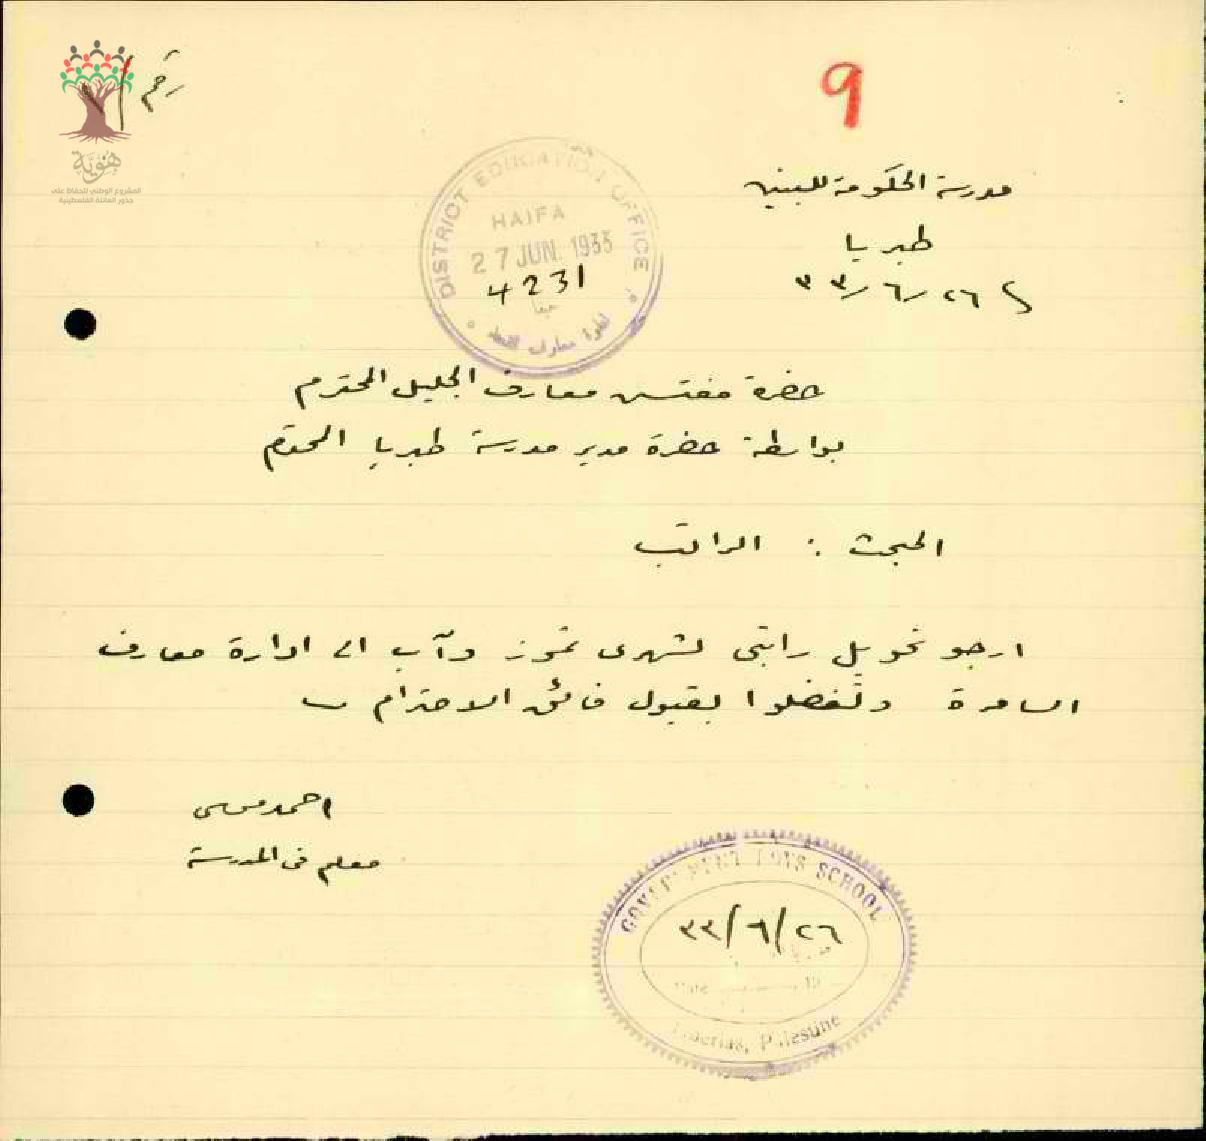 رقم
9
هوية
المشروع الوطني للحفاظ على
جذور العائلة الفلسطينية
مدرسة الحكومة للبنين
طبريا
٢٦/٦/٣٣
DISTRICT EDUCATION OFFICE
HAIFA
27 JUN. 1933
4231
حيفا
حضرة مفتش معارف الجليل المحترم
بواسطة حضرة مدير مدرسة طبريا المحترم
المبحث : الراتب
ارجو تحويل راتبي لشهري تموز وآب الى ادارة معارف
السامرة وتفضلوا بقبول فائق الاحترام
احمد موسى
معلم في المدرسة
GOVERNMENT BOYS SCHOOL
٢٦/٦/٣٣
Date 19
Tiberias, Palestine